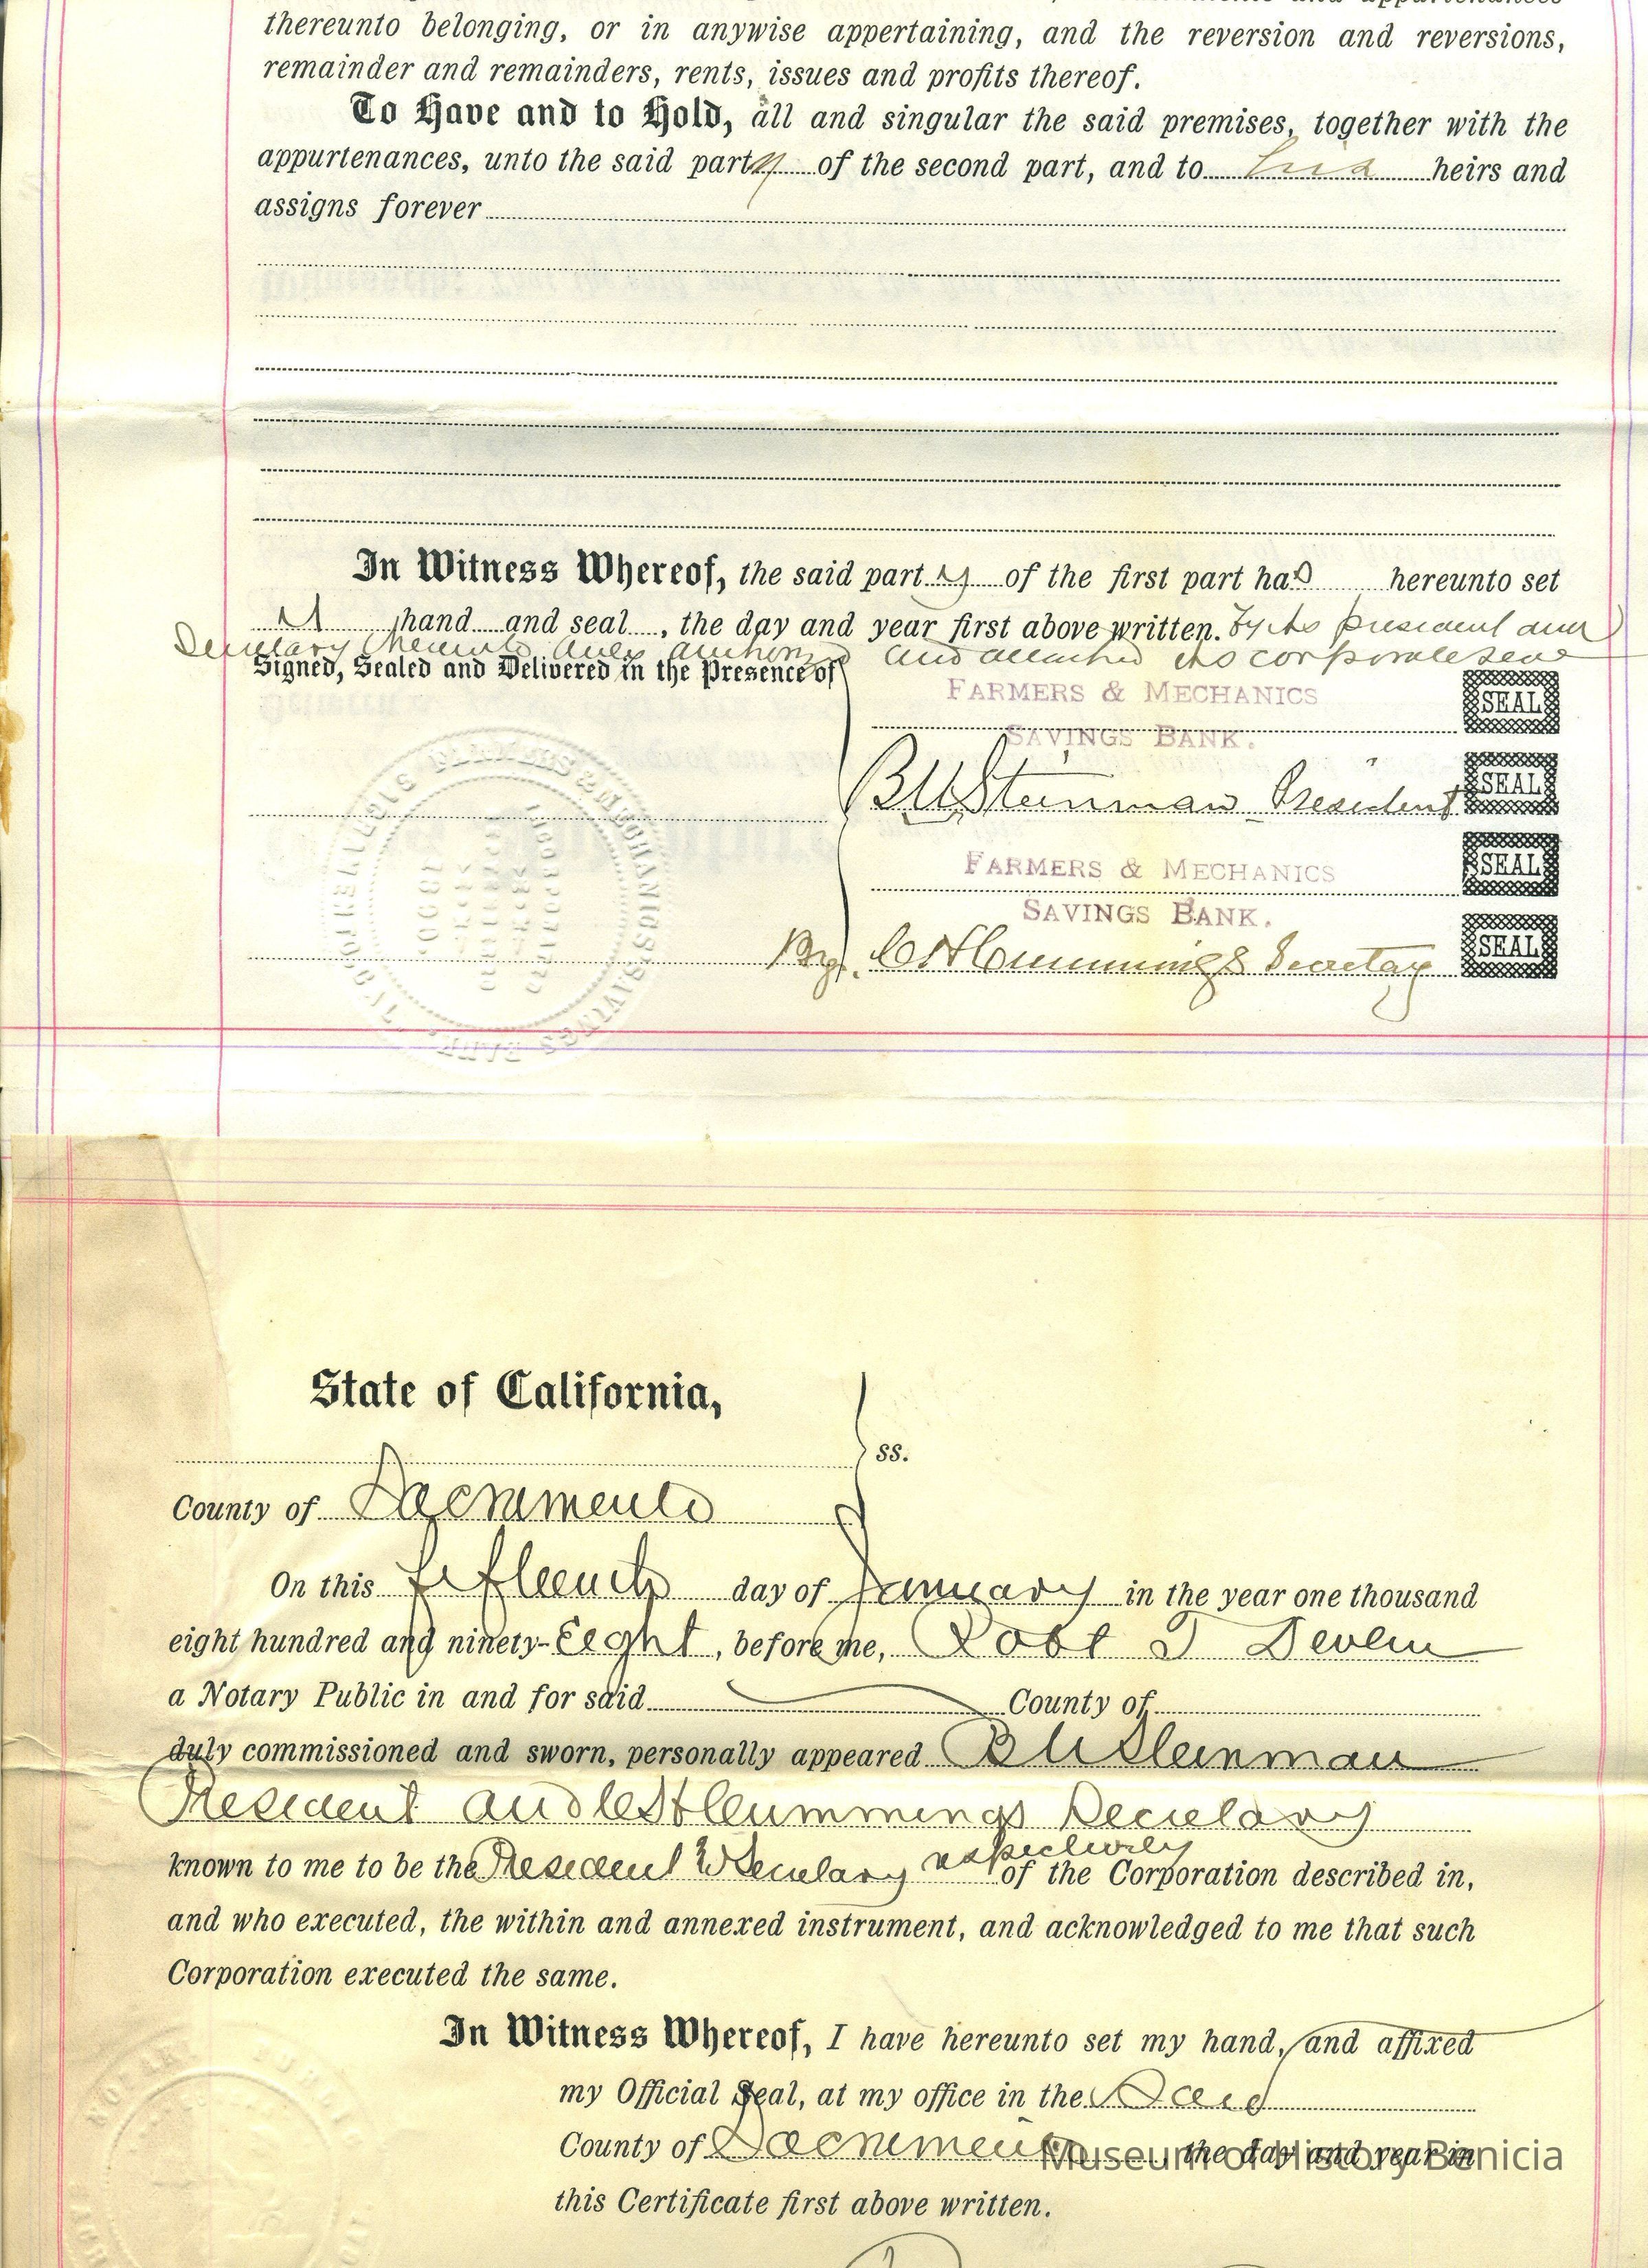 thereunto belonging, or in anywise appertaining, and the reversion and reversions,
remainder and remainders, rents, issues and profits thereof.
To Have and to Hold, all and singular the said premises, together with the
appurtenances, unto the said party of the second part, and to his heirs and
assigns forever
In Witness Whereof, the said party of the first part has hereunto set
hand and seal, the day and year first above written. By its president and
Secretary thereunto duly authorized and attached its corporate seal
Signed, Sealed and Delivered in the Presence of
FARMERS & MECHANICS
SEAL
SAVINGS BANK.
B U Steinman President
SEAL
FARMERS & MECHANICS
SEAL
SAVINGS BANK.
By C H Cummings Secretary
SEAL
FARMERS & MECHANICS SAVINGS BANK
State of California,
ss.
County of Sacramento
On this fifteenth day of January in the year one thousand
eight hundred and ninety-Eight, before me, Robt T Devlin
a Notary Public in and for said County of
duly commissioned and sworn, personally appeared B U Steinman
President and C H Cummings Secretary
known to me to be the President & Secretary respectively of the Corporation described in,
and who executed, the within and annexed instrument, and acknowledged to me that such
Corporation executed the same.
In Witness Whereof, I have hereunto set my hand, and affixed
my Official Seal, at my office in the Said
County of Sacramento, the day and year in
this Certificate first above written.
Museum of History Benicia